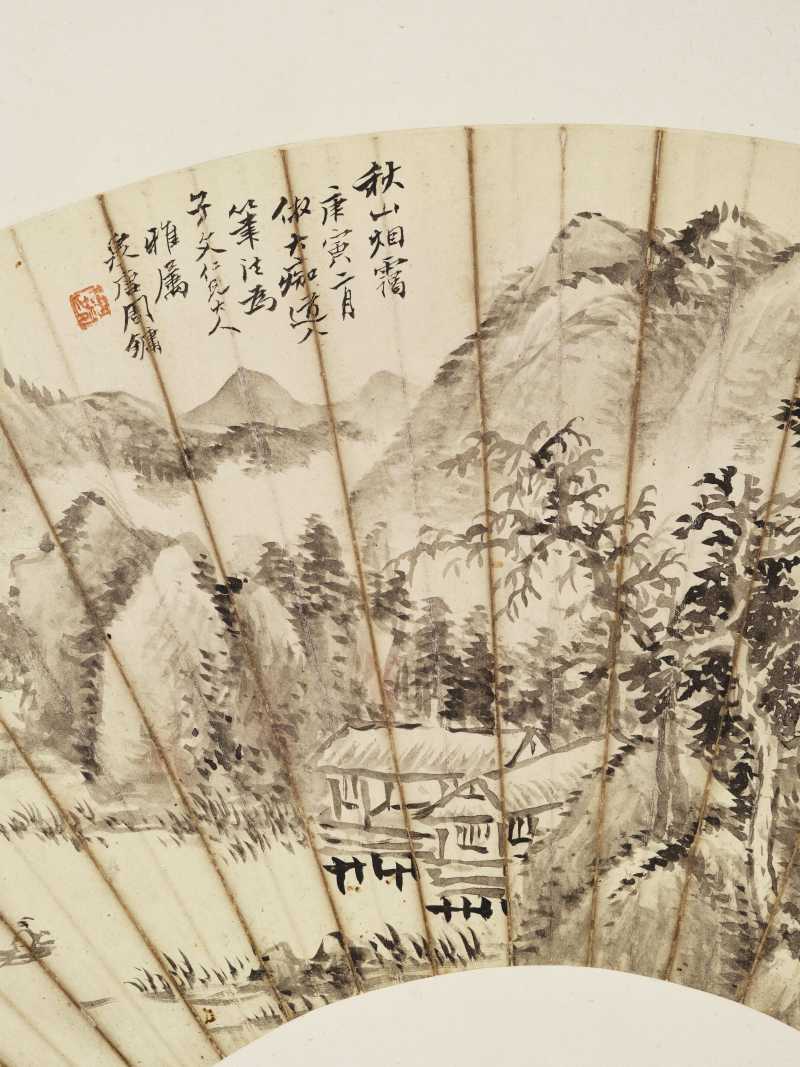 秋山烟靄
庚寅二月
倣大痴道人
筆法為
子文仁兄大人
雅屬
周鏞